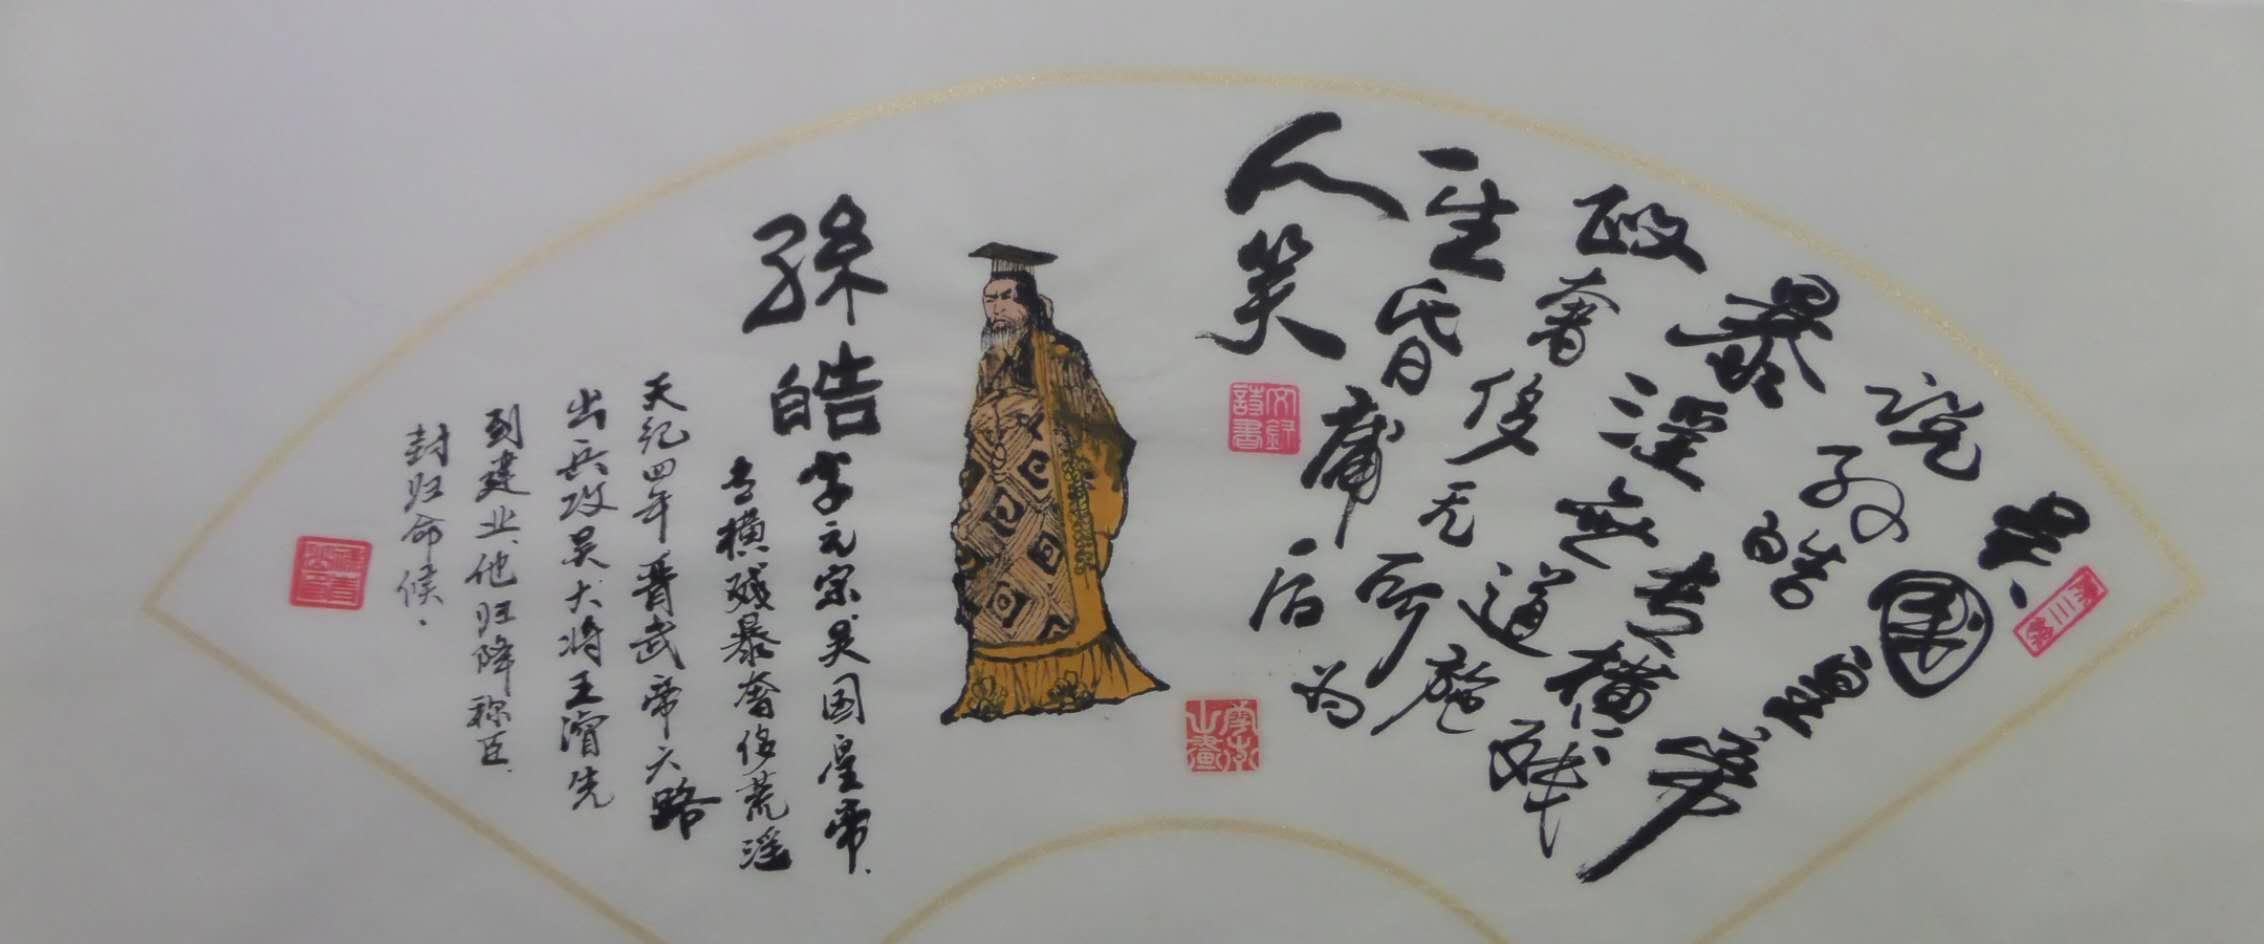 吴国皇帝
说孙皓专横残
暴淫無道施
政奢侈无所
一生昏庸后为
人笑
孫皓字元宗吴国皇帝.
专横残暴奢侈荒淫
天纪四年晋武帝六路
出兵攻吴大将王濬先
到建业、他归降称臣.
封归命候.